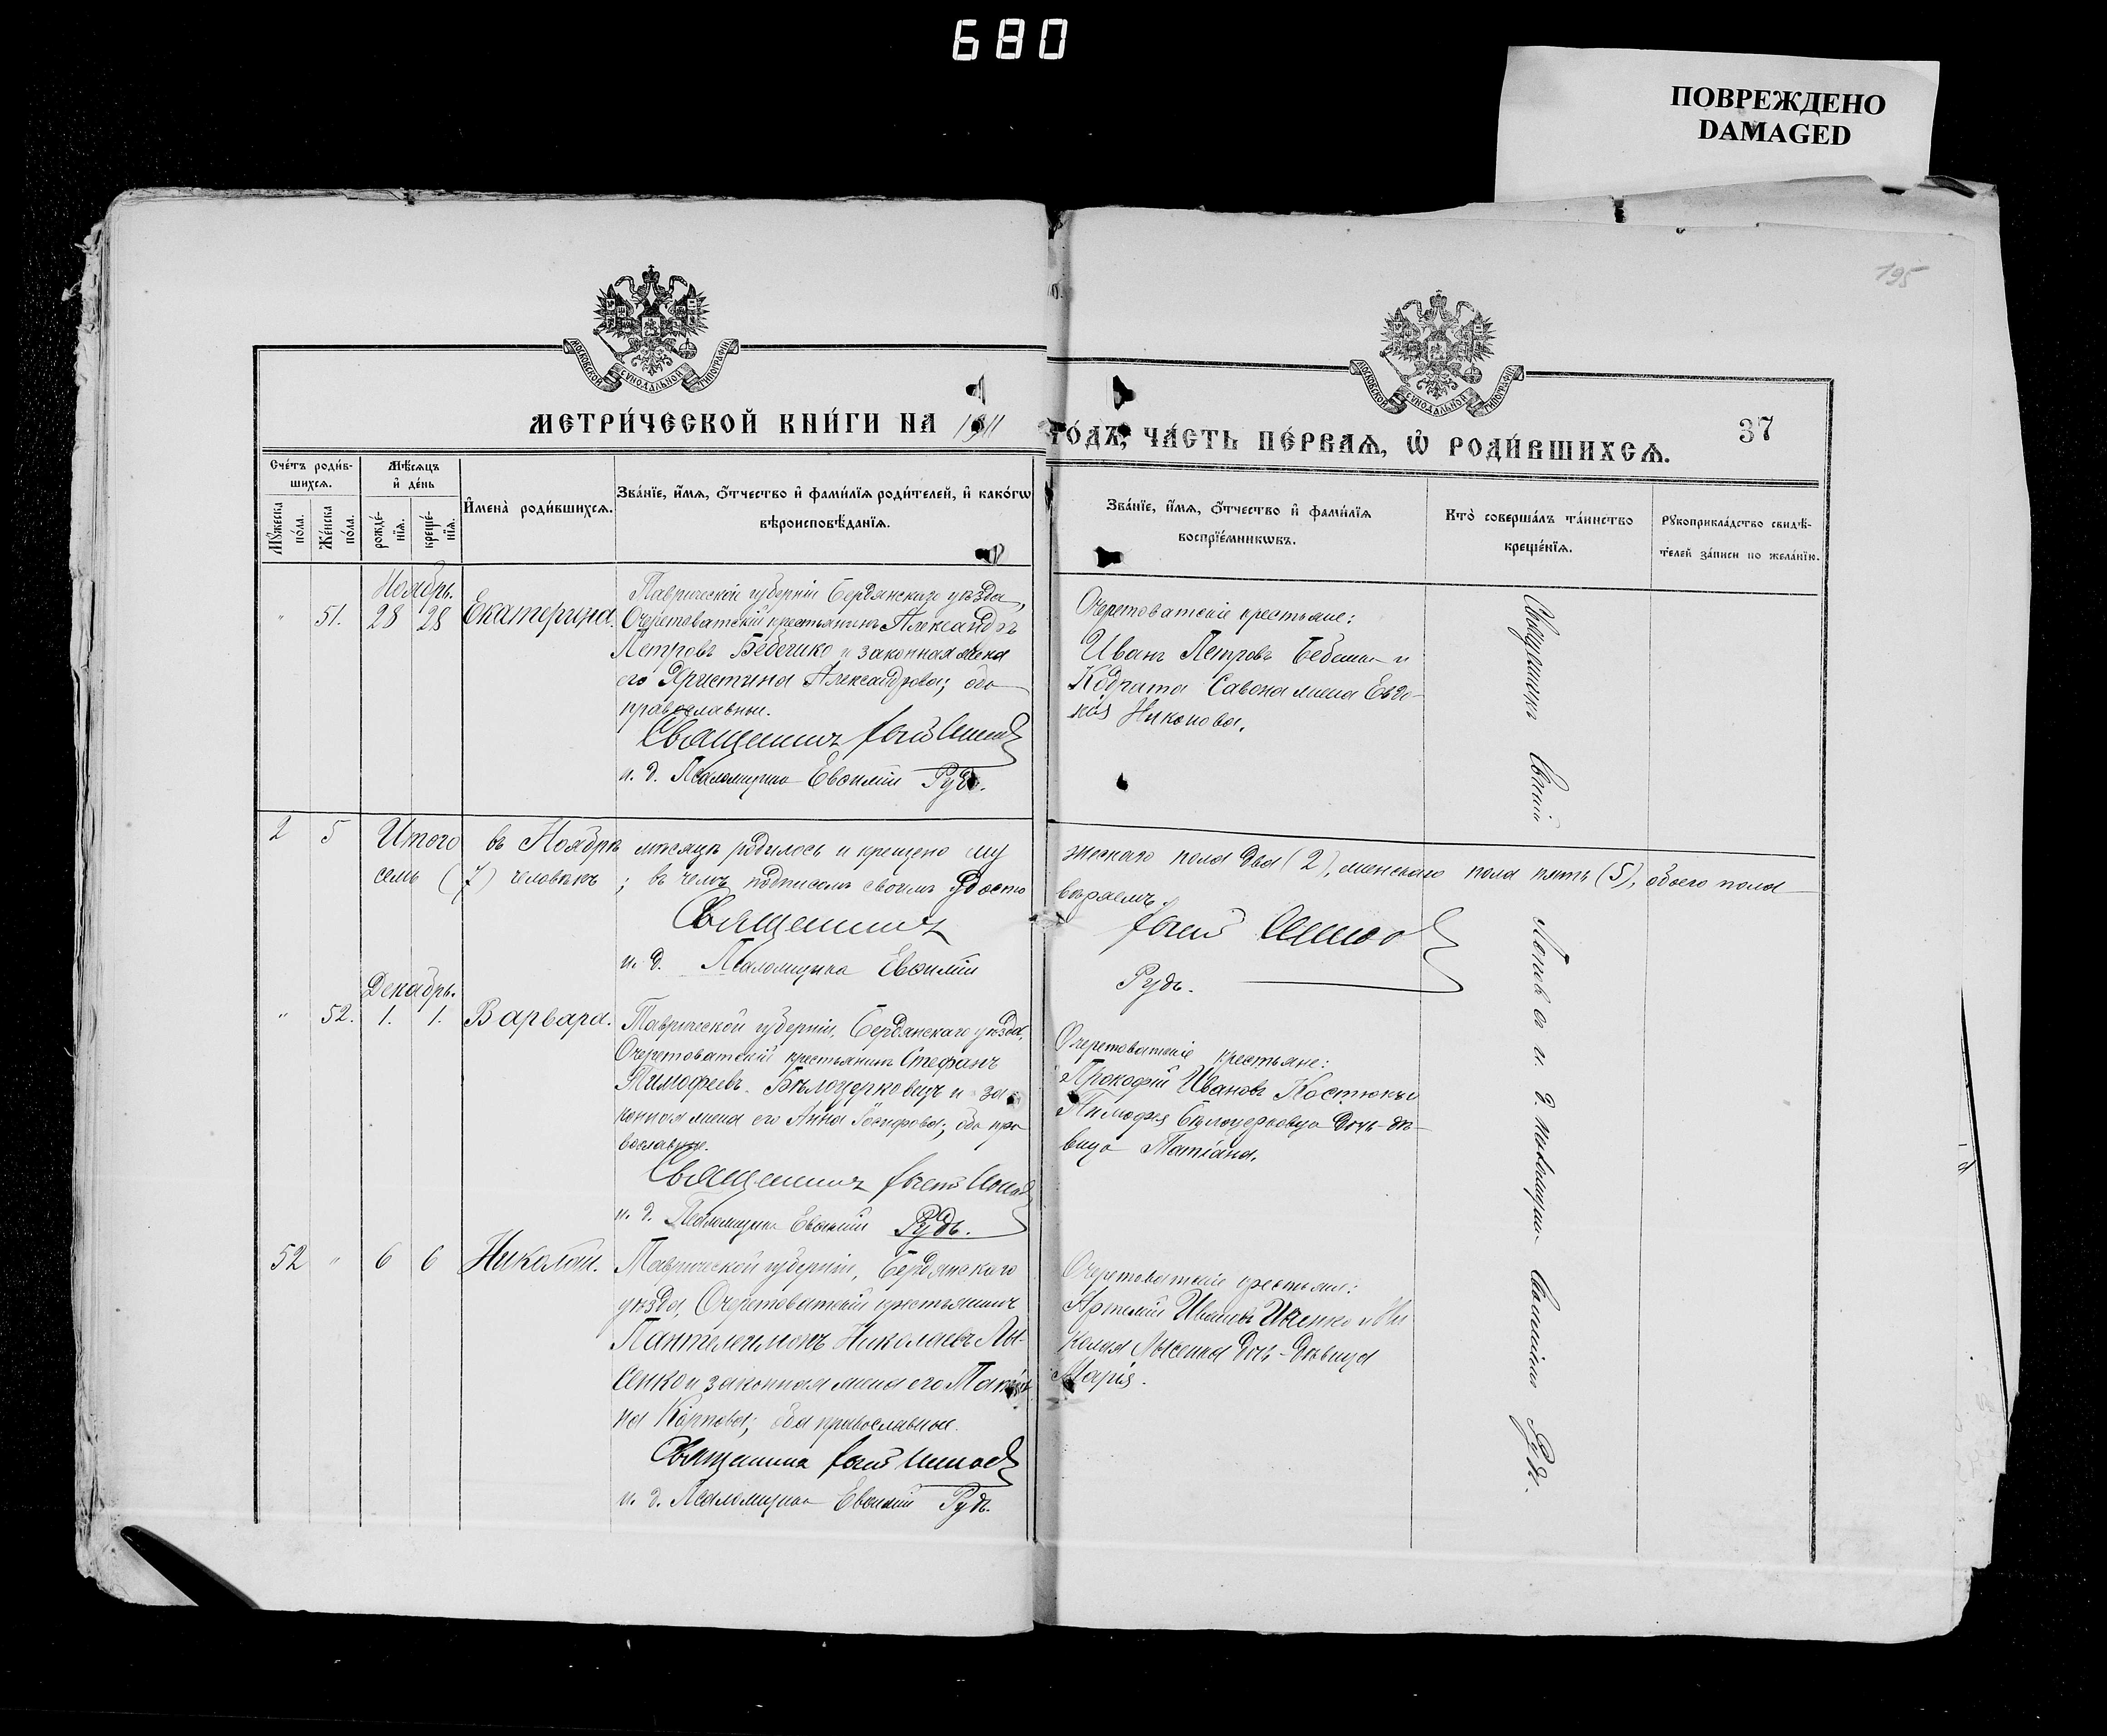 680
ПОВРЕЖДЕНО
DAMAGED
195
МОСКОВСКОЙ СУНОДАЛЬНОЙ ТИПОГРАФІИ
МОСКОВСКОЙ СУНОДАЛЬНОЙ ТИПОГРАФІИ
МЕТРИ́ЧЕСКОЙ КНИ́ГИ НА 1911
ГО́ДЪ, ЧА́СТЬ ПЕ́РВАѦ, Ѡ҆ РОДИ́ВШИХСѦ.
37
Сче́тъ роди́в-
шихсѧ.
Мѣ́сѧцъ
и҆ де́нь
Мꙋ́жеска
по́ла.
Же́нска
по́ла.
рожде́-
нїѧ.
креще́-
нїѧ.
И҆мена̀ роди́вшихсѧ.
Зва́нїе, и҆́мѧ, ѻ҆́тчество и҆ фами́лїѧ роди́телей, и҆ како́гѡ
вѣроисповѣ́данїѧ.
Зва́нїе, и҆́мѧ, ѻ҆́тчество и҆ фами́лїѧ
воспрїе́мникѡвъ.
Кто̀ соверша́лъ та́инство
креще́нїѧ.
Рꙋкоприкла́дство свидѣ́-
телей за́писи по жела́нїю.
Ноябрь.
" 51. 28 28 Екатерина.
Таврической губерніи Бердянскаго уѣзда,
Очеретоватскій крестьянинъ Александръ
Петровъ Бебешко и законная жена
его Христина Александрова; оба
православные.
Священникъ
и. д. Псаломщика Евѳимій Рудь.
Очеретоватскіе крестьяне:
Иванъ Петровъ Бебешко и
Кодрата Савона жена Евдо-
кія Никонова.
2 5 Итого въ Ноябрѣ мѣсяцѣ родилось и крещено му
жескаго пола два (2), женскаго пола пять (5), обоего пола
семь (7) человѣкъ; въ чемъ подписомъ своимъ удосто
вѣряемъ.
Священникъ
и. д. Псаломщика Евѳимій
Рудь.
Декабрь.
" 52. 1. 1. Варвара.
Таврической губерніи, Бердянскаго уѣзда,
Очеретоватскій крестьянинъ Стефанъ
Тимофеевъ Бѣлоцерковецъ и за
конная жена его Анна Іосифова; оба пра
вославные.
Священникъ
и. д. Псаломщика Евѳимій Рудь.
Очеретоватскіе крестьяне:
Прокофій Ивановъ Костюкъ и
Тимофея Бѣлоцерковца дочь-дѣ-
вица Татіана.
52 " 6 6 Николай.
Таврической губерніи, Бердянскаго
уѣзда, Очеретоватскій крестьянинъ
Пантелеимонъ Николаевъ Лы-
сенко и законная жена его Татіа
на Карпова; оба православные.
Священникъ
и. д. Псаломщика Евѳимій Рудь.
Очеретоватскіе крестьяне:
Артемій Ивановъ Ивченко и Ни
колая Лысенка дочь-дѣвица
Марія.
Священникъ
Поповъ и и. д. псаломщика Евѳимій Рудь.